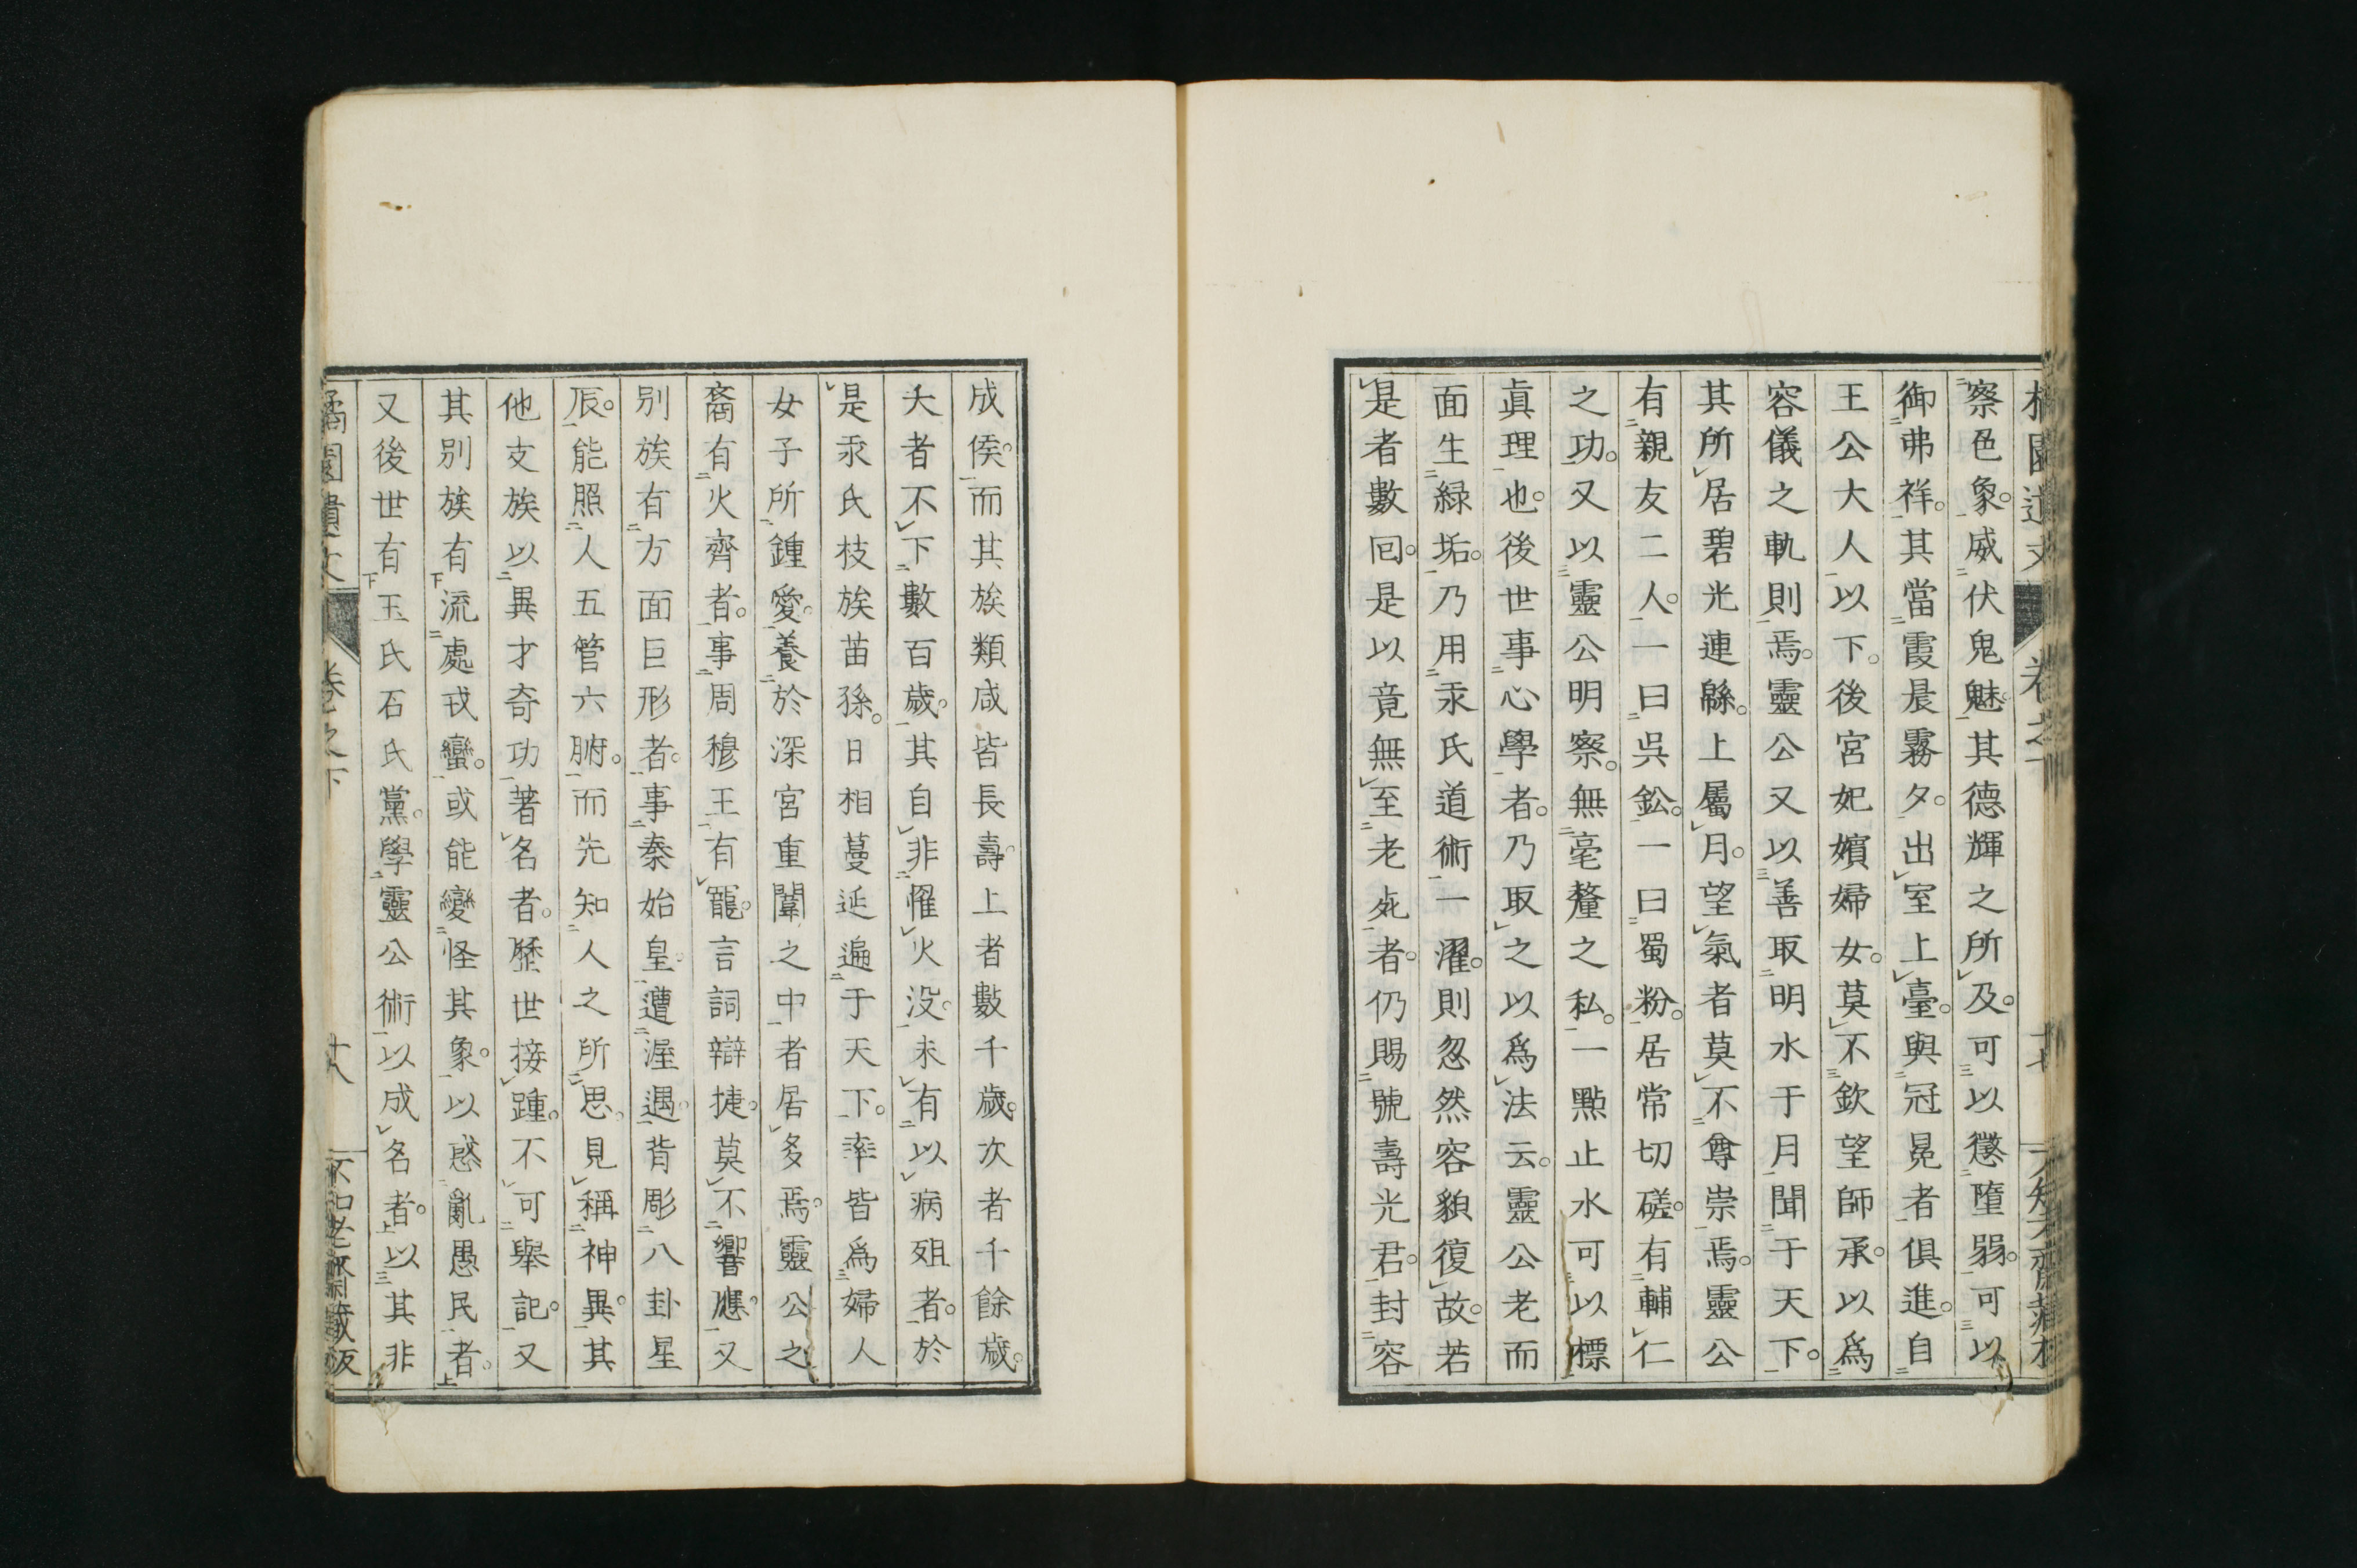 察色象。威伏鬼魅。其德輝之所及。可以懲墮弱。可以
御弗祥。其當霞晨霧夕。出室上臺。與冠冕者俱進。自
王公大人以下。後宮妃嬪婦女。莫不欽望師承。以爲
容儀之軌則焉。靈公又以善取明水于月。聞于天下。
其所居碧光連緜。上屬月。望氣者莫不尊崇焉。靈公
有親友二人。一曰吳鈆。一曰蜀粉。居常切磋。有輔仁
之功。又以靈公明察。無毫釐之私。一點止水可以標
眞理也。後世事心學者。乃取之以爲法云。靈公老而
面生緑垢。乃用汞氏道術一濯。則忽然容貌復故。若
是者數囘。是以竟無至老死者。仍賜號壽光君。封容
成侯。而其族類咸皆長壽。上者數千歲。次者千餘歲。
夭者不下數百歲。其自非罹火没。未有以病殂者。於
是汞氏枝族苗孫。日相蔓延遍于天下。率皆爲婦人
女子所鍾愛。養於深宮重闈之中者居多焉。靈公之
裔有火齊者。事周穆王有寵。言詞辯捷。莫不響應。又
别族有方面巨形者。事秦始皇。遭渥遇。背彫八卦星
辰。能照人五管六腑。而先知人之所思。見稱神異。其
他支族以異才奇功著名者。歷世接踵。不可舉記。又
其別族有流處戎蠻。或能變怪其象。以惑亂愚民者。
又後世有玉氏石氏黨。學靈公術以成名者。以其非
橘園遺文
卷之下
十八